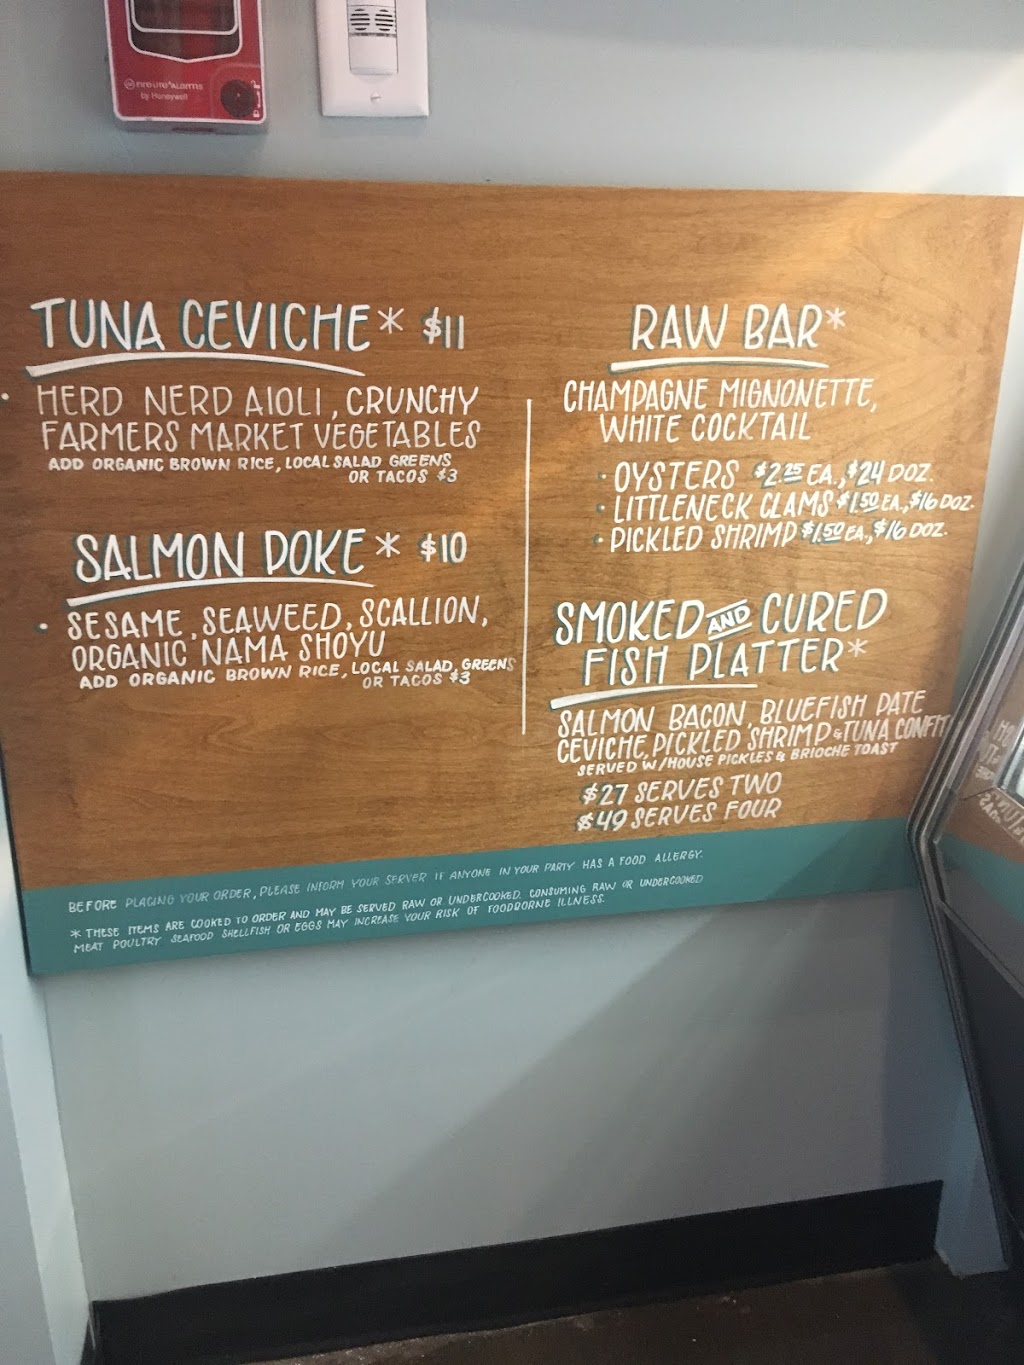 FIRE-LITE ALARMS
by Honeywell
TUNA CEVICHE* $11
• HERD NERD AIOLI, CRUNCHY
FARMERS MARKET VEGETABLES
ADD ORGANIC BROWN RICE, LOCAL SALAD GREENS
OR TACOS $3
SALMON POKE* $10
• SESAME, SEAWEED, SCALLION,
ORGANIC NAMA SHOYU
ADD ORGANIC BROWN RICE, LOCAL SALAD, GREENS
OR TACOS $3
RAW BAR*
CHAMPAGNE MIGNONETTE,
WHITE COCKTAIL
• OYSTERS $2.25 EA., $24 DOZ.
• LITTLENECK CLAMS $1.50 EA., $16 DOZ.
• PICKLED SHRIMP $1.50 EA., $16 DOZ.
SMOKED AND CURED
FISH PLATTER*
SALMON BACON, BLUEFISH PATE
CEVICHE, PICKLED SHRIMP & TUNA CONFIT
SERVED W/HOUSE PICKLES & BRIOCHE TOAST
$27 SERVES TWO
$49 SERVES FOUR
BEFORE PLACING YOUR ORDER, PLEASE INFORM YOUR SERVER IF ANYONE IN YOUR PARTY HAS A FOOD ALLERGY.
* THESE ITEMS ARE COOKED TO ORDER AND MAY BE SERVED RAW OR UNDERCOOKED. CONSUMING RAW OR UNDERCOOKED
MEAT POULTRY SEAFOOD SHELLFISH OR EGGS MAY INCREASE YOUR RISK OF FOODBORNE ILLNESS.